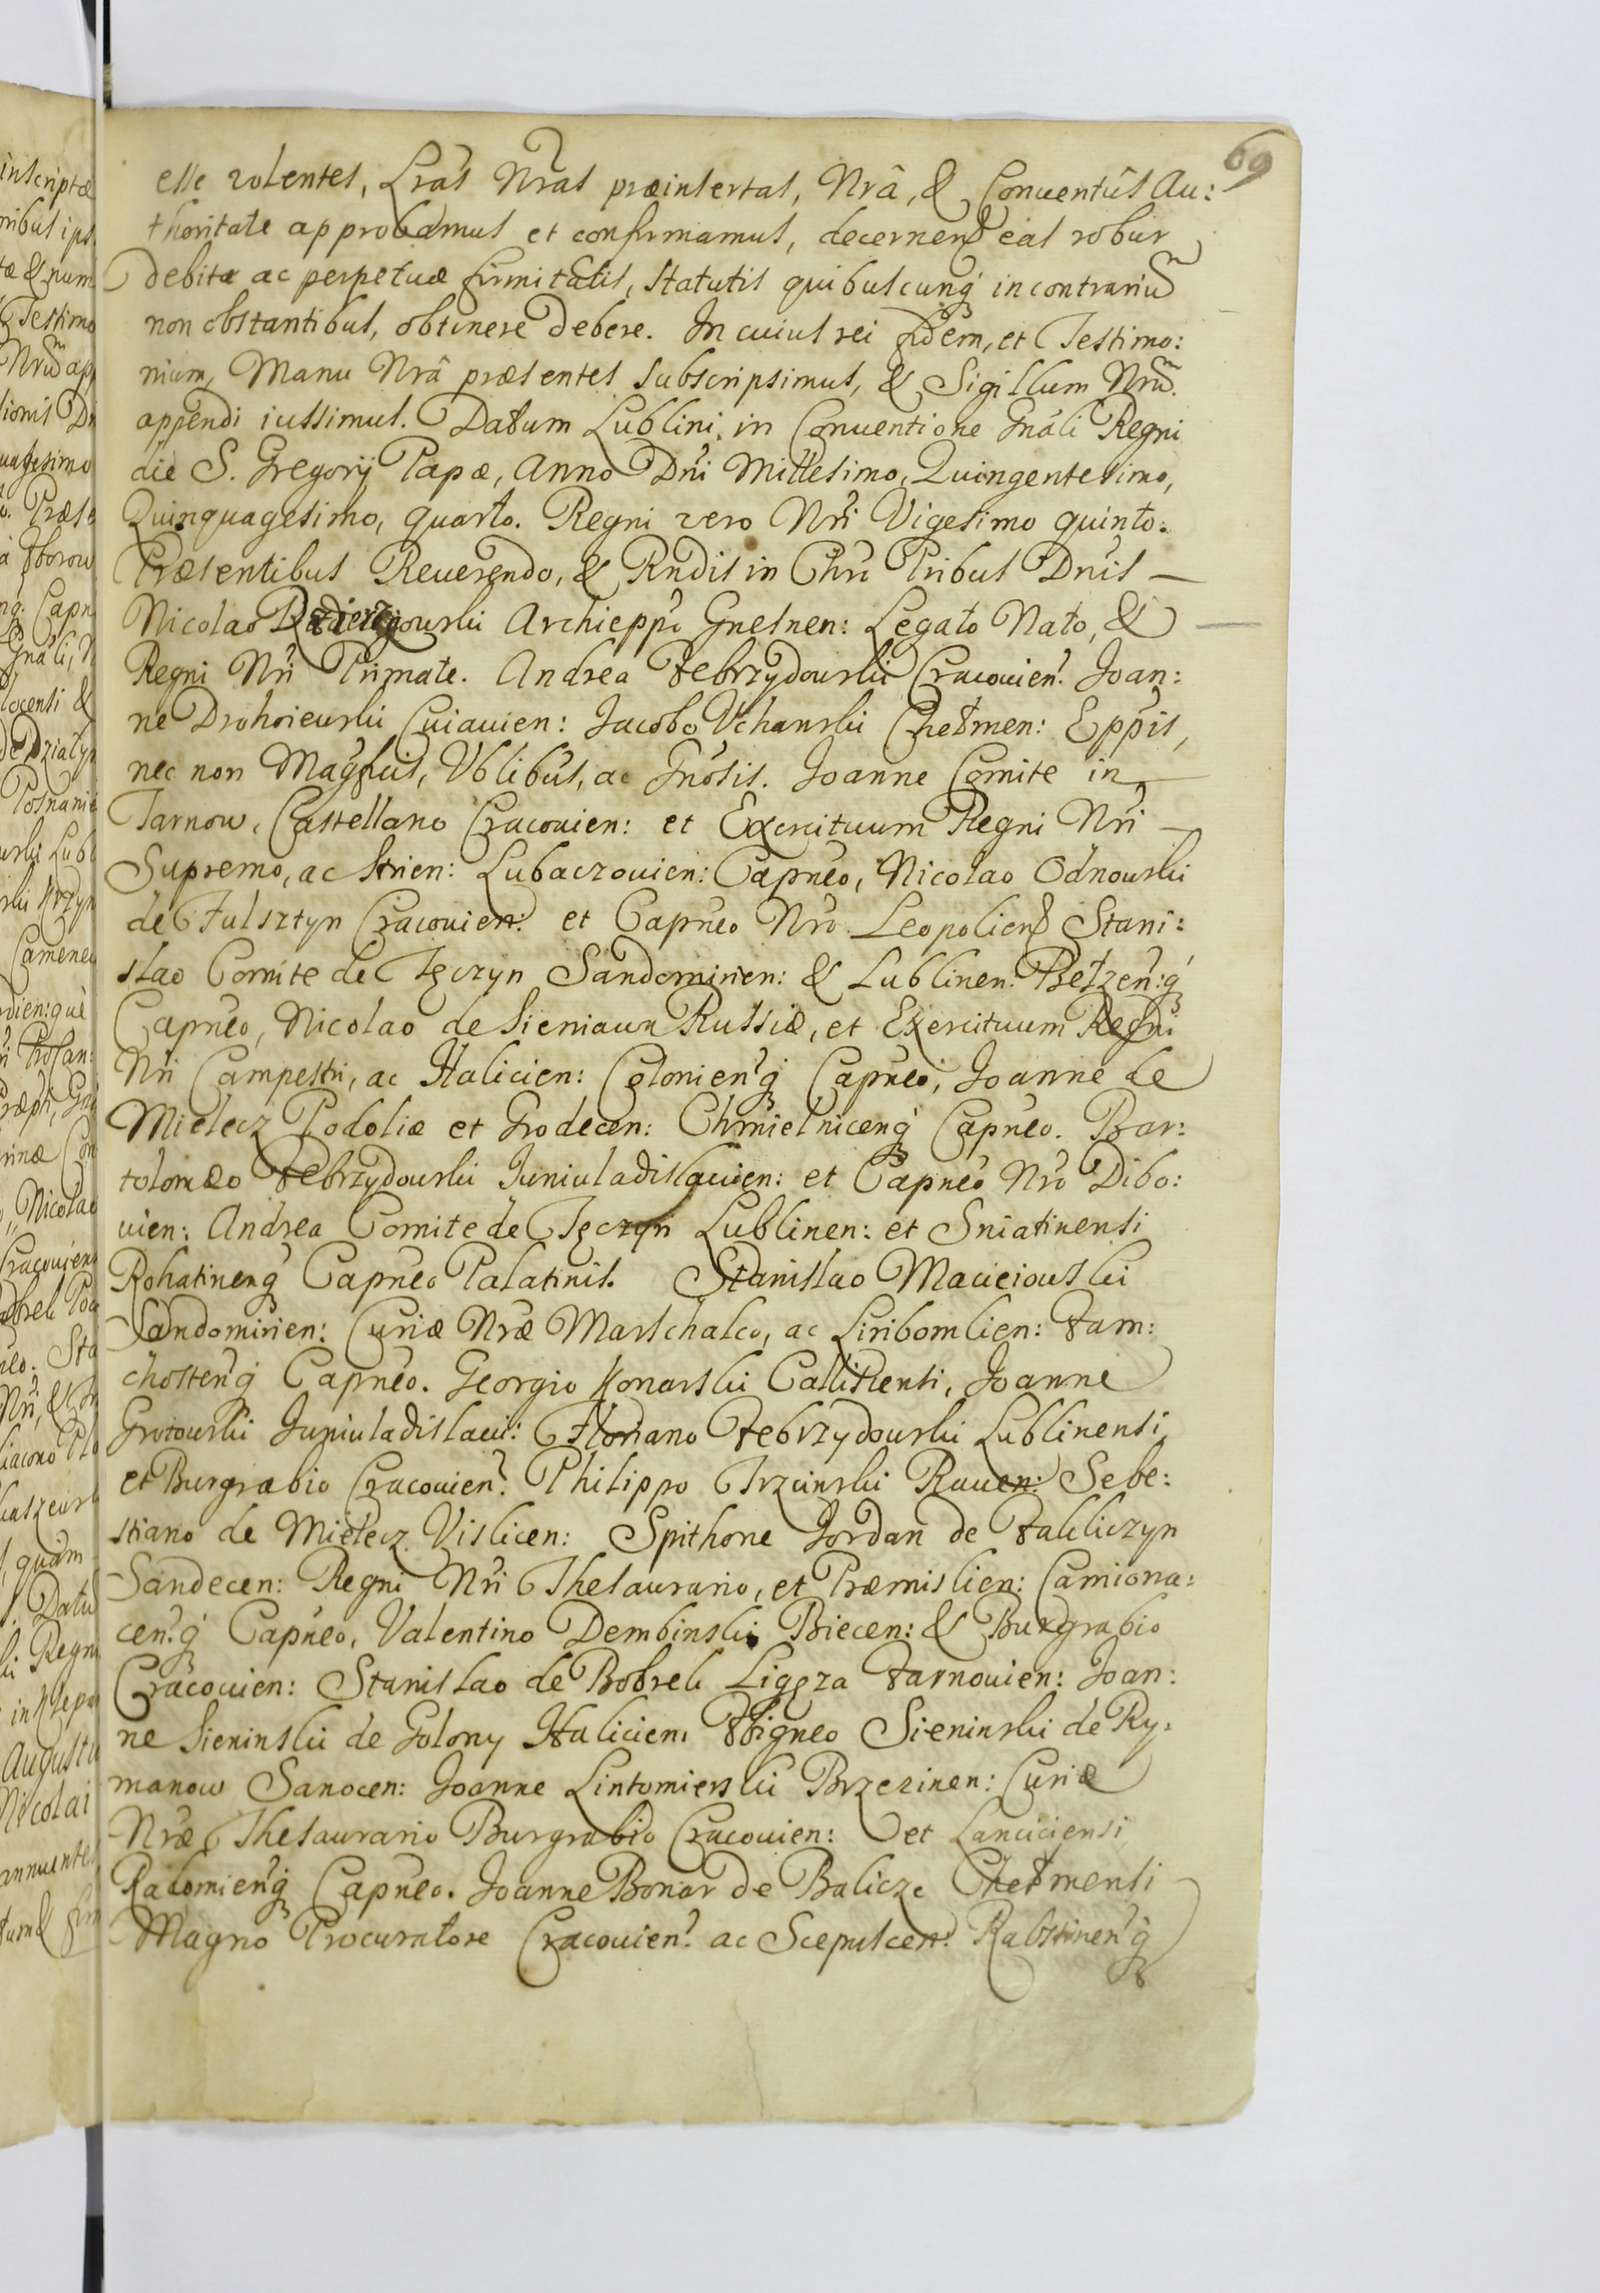 69
esse volentes, Lrãs Nrãs præinsertas, Nrâ, & Conuentûs Au:
thoritate approbamus et confirmamus, decernen& eas robur
debitæ ac perpetuæ firmitatis, statutis quibuscunq́ in contrariũ
non obstantibus, obtinere debere. In cuius rei fidem, et Testimo:
nium, Manu Nrâ præsentes subscripsimus, & Sigillum Nrũ.
appendi iussimus. Datum Lublini in Conuentione Gnãli Regni
die S. Gregorij Papæ, Anno Dñi Millesimo, Quingentesimo,
Quinquagesimo, quarto. Regni vero Nri Vigesimo quinto.
Præsentibus Reuerendo, & Rndis in Chrõ Pribus Dnis —
Nicolao Archieppõ Gnesnen: Legato Nato, &
Regni Nri Primate. Andrea Zebrzydowski Cracouien: Joan:
ne Drohoiewski Cuiauien: Jacobo Vchanski Chełmen: Eppis,
nec non Magfcis, Vblibus, ac Gnosis. Joanne Comite in
Tarnow, Castellano Cracouien: et Exercituum Regni Nri —
Supremo, ac Strien: Lubaczouien: Capneo, Nicolao Odnowski
de Fulsztyn Cracouien: et Capneo Nro Leopolien& Stani:
slao Comite de Tęczyn Sandomirien: & Lublinen: Bełzen:q́
Capneo, Nicolao de Sieniawa Russiæ, et Exercituum Regni
Nri Campestri, ac Halicien: Colonien:q́ Capneo, Joanne de
Mielecz Podoliæ et Grodecen: Chmielnicenq́ Capneo. Bar:
tolomæo Zebrzydowski Juniuladislauien: et Capneo Nro Dibo:
uien: Andrea Comite de Tęczyn Lublinen: et Sniatinensi
Rohatinenq́ Capneo Palatinis. Stanislao Macieiowski
Sandomirien: Curiæ Nræ Marschalco, ac Liribomlien: Zam:
chostenq́ Capneo. Georgio Konarski Callisiensi, Joanne
Grotowski Juniuladislaui: Floriano Zebrzydowski Lublinensi,
et Burgrabio Cracouien: Philippo Trzcinski Rauen: Sebe:
stiano de Mielecz Vislicen: Spithone Jordan de Zakliczyn
Sandecen: Regni Nri Thesaurario, et Præmislien: Camiona:
cen:q́ Capneo, Valentino Dembinski Biecen: & Burgrabio
Cracouien: Stanislao de Bobrek Ligęza Zarnouien: Joan:
ne Sieninski de Golony Halicien: Zbigneo Sieninski de Ry:
manow Sanocen: Joanne Lintomierski Brzezinen: Curiæ
Nræ Thesaurario Burgrabio Cracouien: et Lanciciensi
Radomienq́ Capneo. Joanne Bonar de Balicze Chełmensi
Magno Procuratore Cracouien: ac Scepulcen: Rabstinen:q́